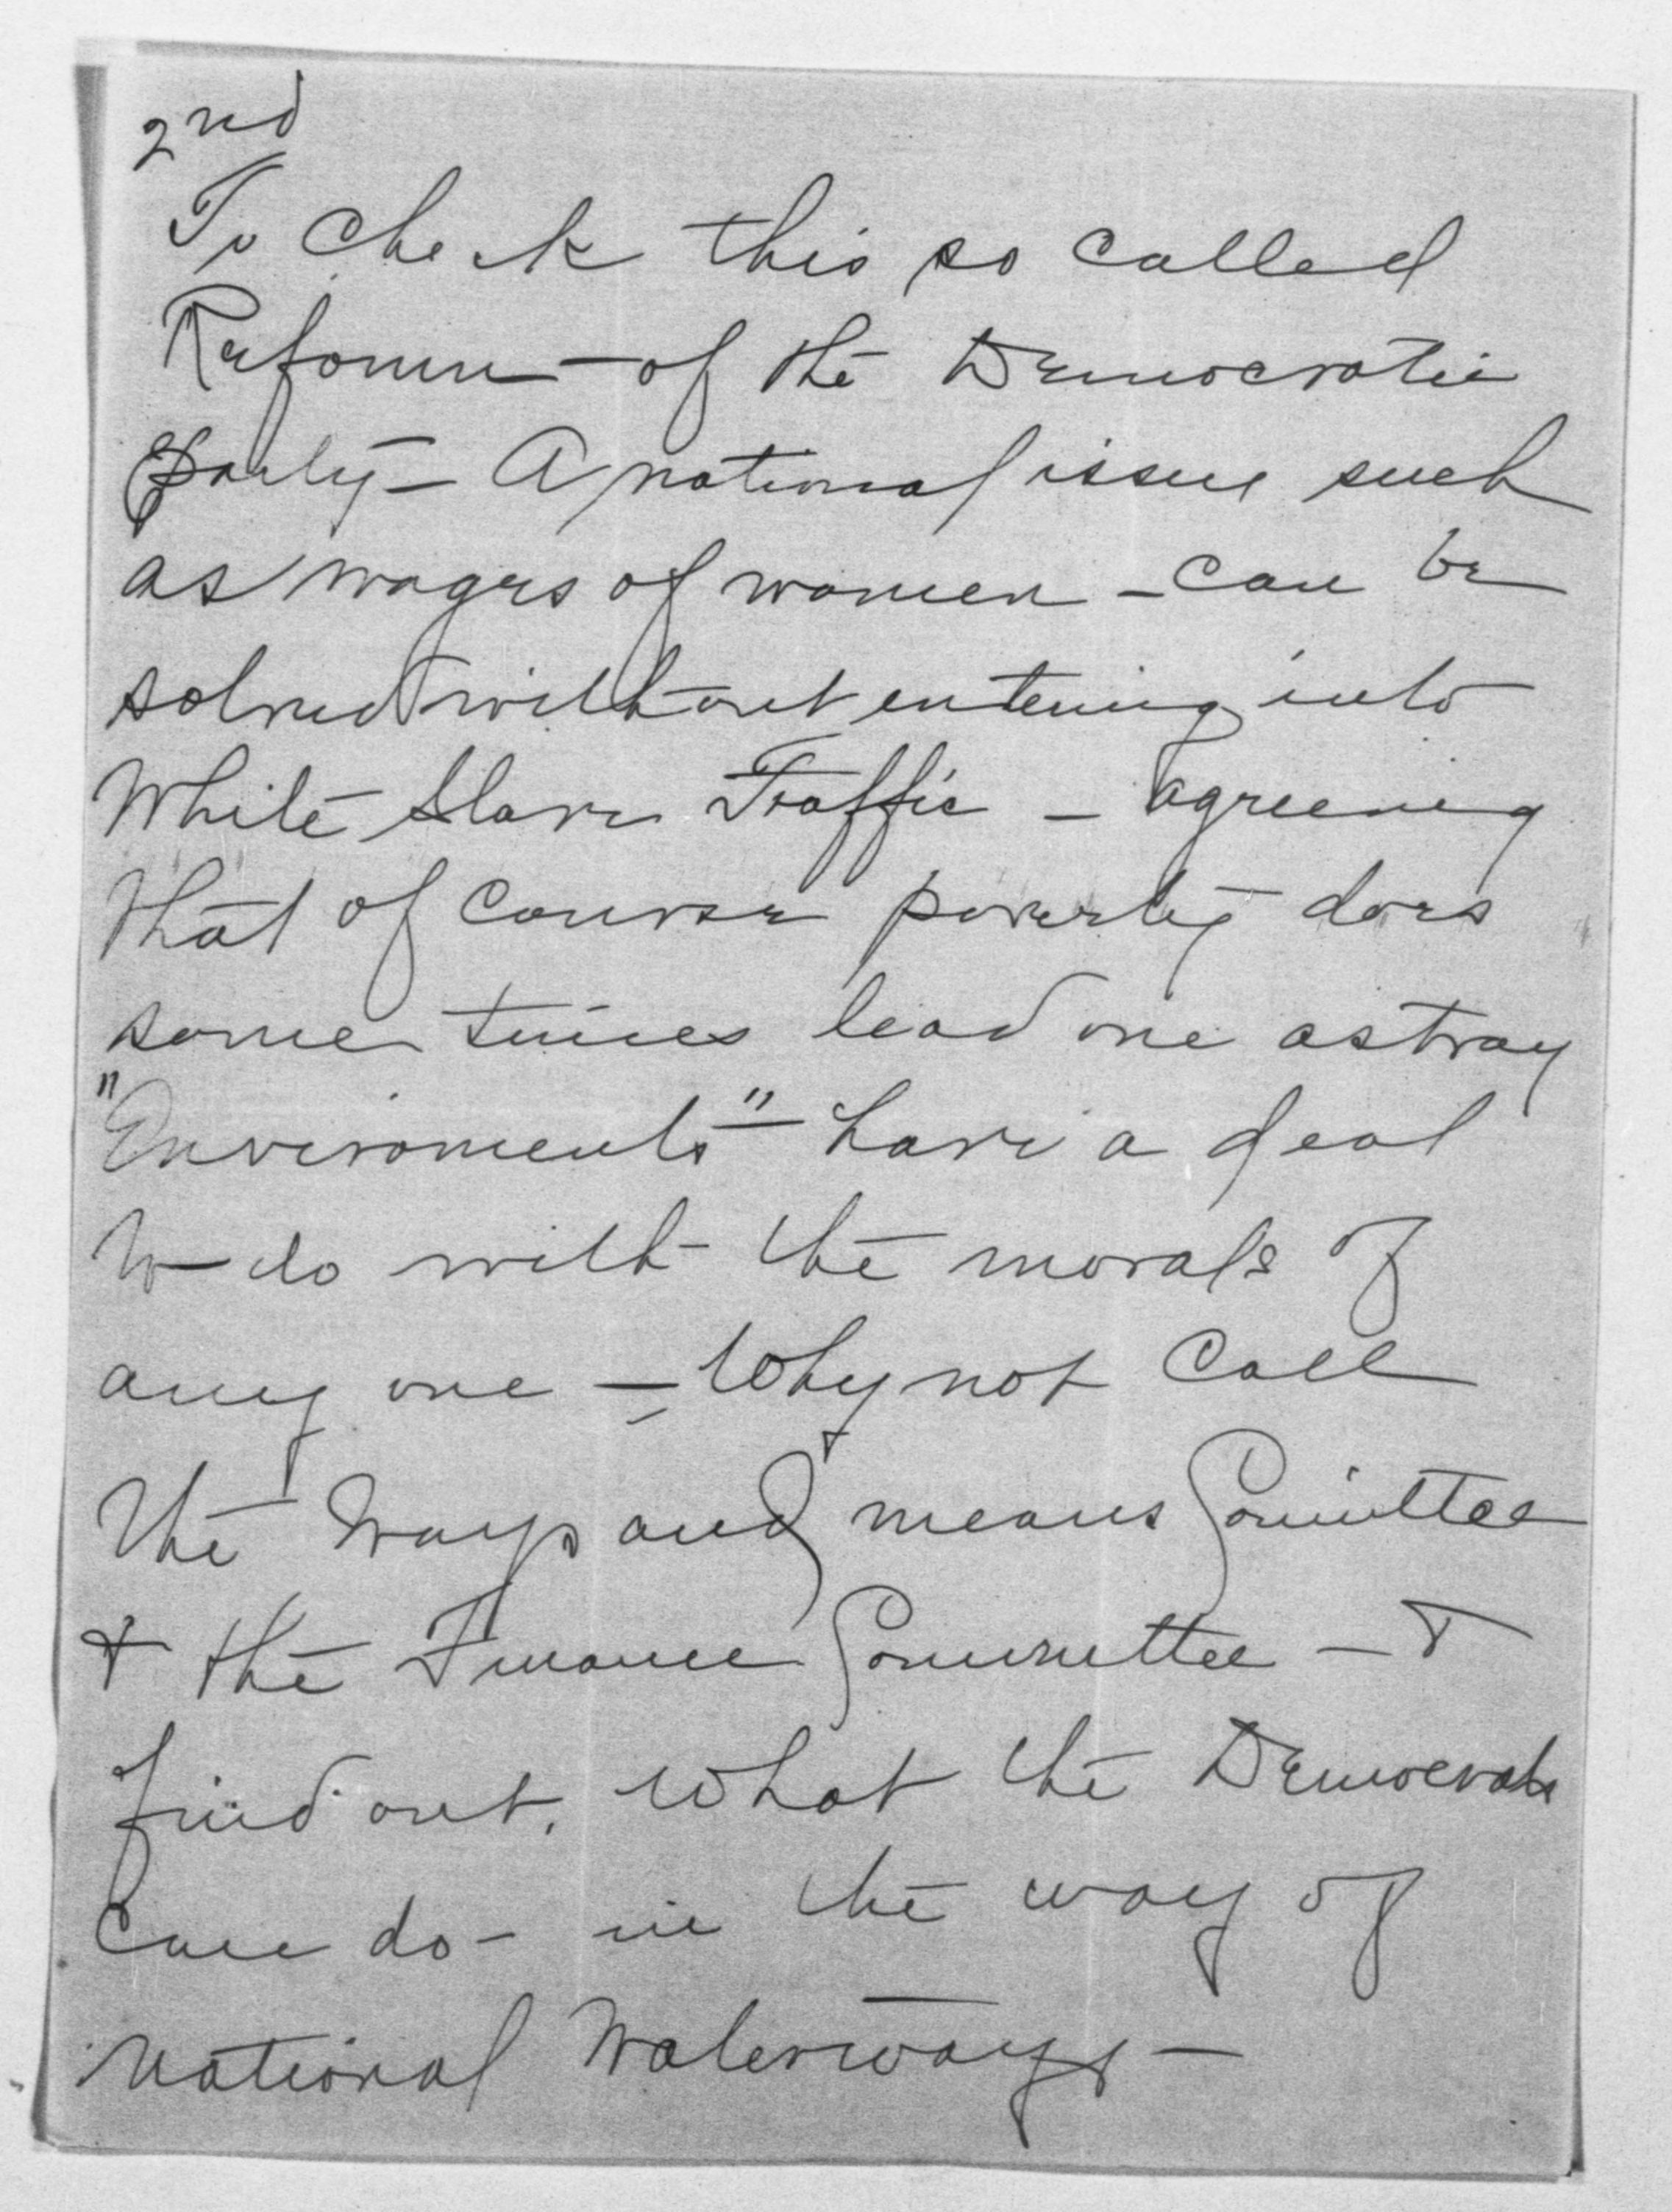 2nd
To check this so called
Reform - of the Democratic
Party - A national issue such
as wages of women - can be
solved without entering into
White Slave Traffic - agreeing
that of course poverty does
some times lead one astray
"Enviroments" - have a deal
to do with the morals of
any one - Why not call
the Ways and means Comittee
& the Finance Committee - &
find out, what the Democrats
can do - in the way of
national Waterways -